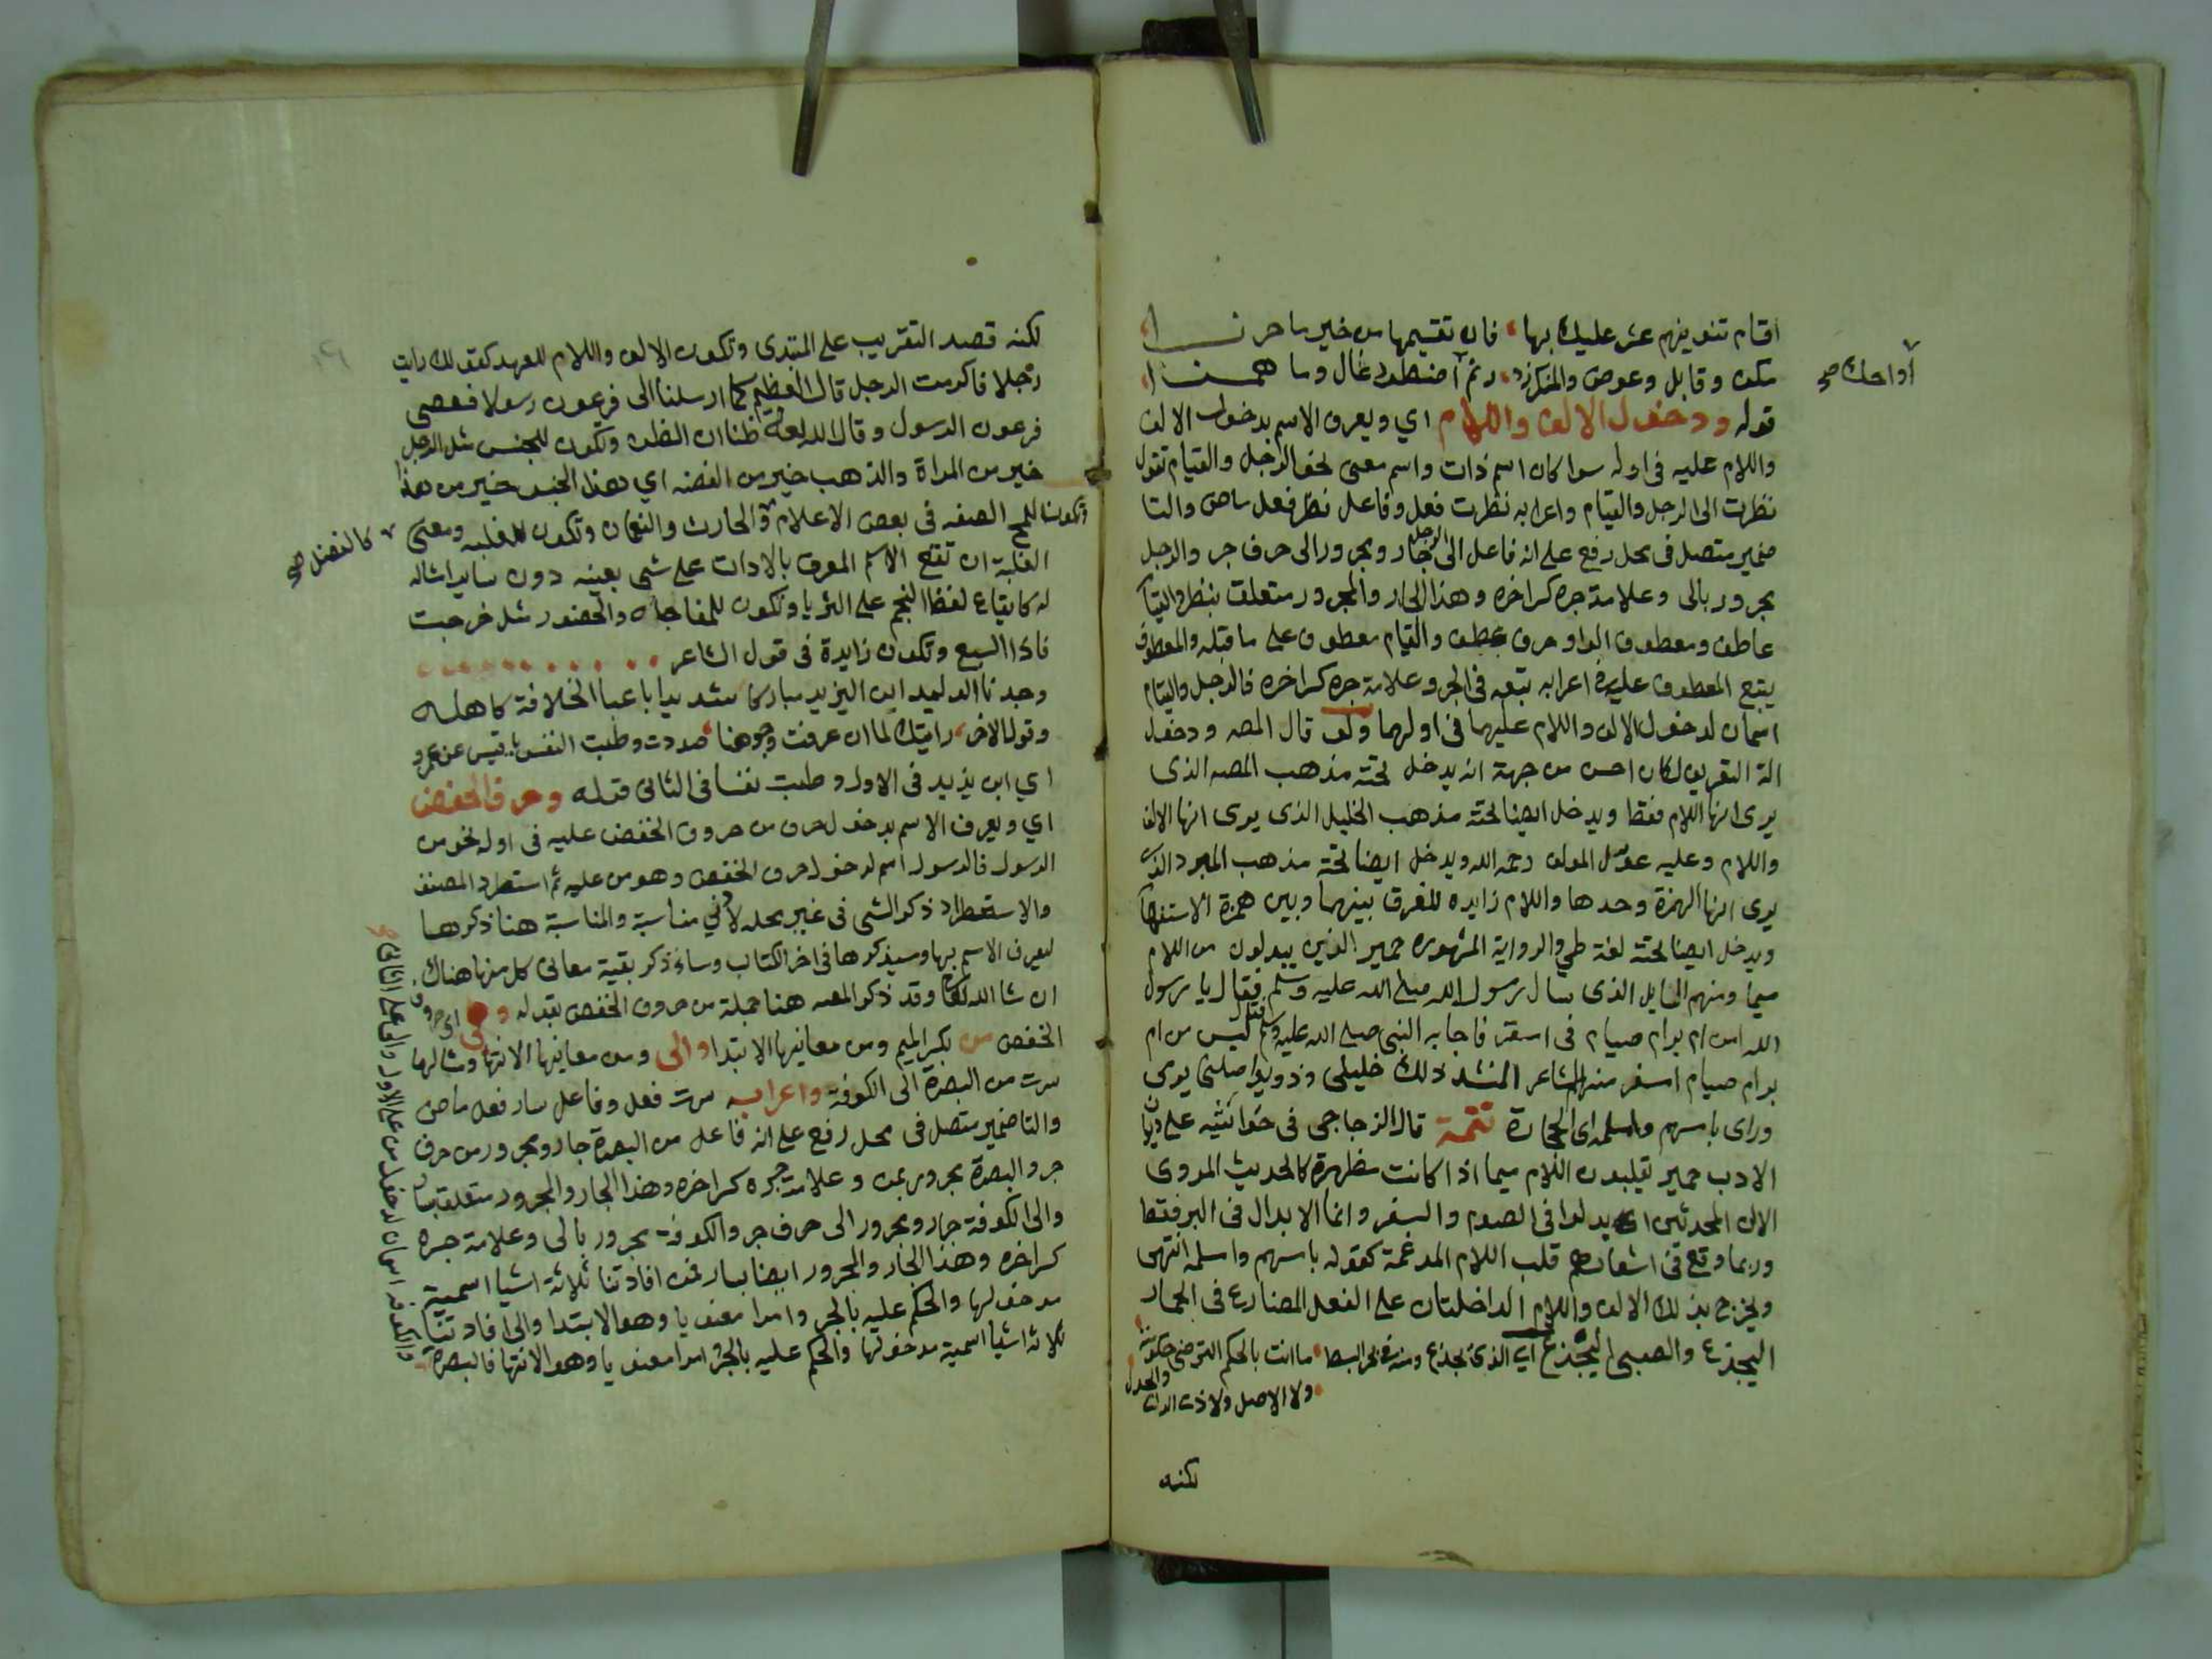 اقسام تنوينهم عشر عليك بها فان تقسيمها من خير ما حرزا
مكن وقابل وعوض والمنكر زد رنم اضطرر غال وما همزا
او احك صح
قوله ودخول الالف واللام اي ويعرف الاسم بدخول الالف
واللام عليه في اوله سوا كان اسم ذات واسم معنى نحو الرجل والقيام تقول
نظرت الى الرجل والقيام واعرابه نظرت فعل وفاعل نظر فعل ماض والتا
ضمير متصل في محل رفع على انه فاعل الى الرجل جار ومجرور الى حرف جر والرجل
مجرور بالى وعلامة جره كسر اخره وهذا الجار والمجرور متعلق بنظر والقيام
عاطف ومعطوف الواو حرف عطف والقيام معطوف على ما قبله والمعطوف
يتبع المعطوف عليه في اعرابه تبعه في الجر وعلامة جره كسر اخره فالرجل والقيام
اسمان لدخول الالف واللام عليهما في اولهما ولو قال المص ودخول
الة التعريف لكان احسن من جهة انه يدخل تحته مذهب المص الذي
يرى انها اللام فقط ويدخل ايضا تحته مذهب الخليل الذي يرى انها الالف
واللام وعليه عول المولف رحمه الله ويدخل ايضا تحته مذهب المبرد الذي
يرى انها الهمزة وحدها واللام زايده للفرق بينهما وبين همزة الاستفهام
ويدخل ايضا تحته لغة طي والرواية المشهوره حمير الذين يبدلون من اللام
ميما ومنهم السايل الذي سال رسول الله صلى الله عليه وسلم فقال يا رسول
الله امن ام برام صيام في اسفر فاجابه النبي صلى الله عليه وسلم فقال ليس من ام
برام صيام اسفر منه الشاعر المنشد ذلك خليلي وذو يواصلني يرمى
وراى باسهم وامسلمه اى الحجارة تتمة قال الزجاجي في حواشيه على ديوان
الادب حمير يقلبون اللام ميما اذا كانت مظهرة كالحديث المروى
الا ان المحدثين ابدلوا في الصوم والسفر وانما الابدال في البر فقط
وربما وقع في اشعارهم قلب اللام المدغمة كقوله باسهم واسلمه انتهى
ويخرج بذلك الالف واللام الداخلتان على الفعل المضارع في الحمار
اليجدع والصبي اليجدع اي الذي يجدع ومنه في بحر البسط ما انت بالحكم الترضى حكومته
ولا الاصيل ولا ذى الراى والجدل
لكنه
لكنه قصد التقريب على المبتدى وتكون الالف واللام للعهد كقولك رايت
رجلا فاكرمت الرجل قال العظيم كما ارسلنا الى فرعون رسولا فعصى
فرعون الرسول وقال الله ظنا ان الظن وتكون للجنس مثل الرجل
خير من المراة والذهب خير من الفضه اي هذا الجنس خير من هذا
وتكون للمح الصفه في بعض الاعلام والحارث والنعمان وتكون للغلبه ومعنى
كالفضل صح
الغلبة ان تقع الاسم المعرف بالادات على شي بعينه دون ساير امثاله
له كايقاع لفظ النجم على الثريا وتكون للمفاجاه والحضور مثل خرجت
فاذا السبع وتكون زايدة في قول الشاعر
وجدنا الوليد ابن اليزيد مباركا شديدا باعبا الخلافة كاهله
وقول الاخر رايتك لما ان عرفت وجوهنا صددت وطبت النفس يا قيس عن عمرو
اي ابن يزيد في الاول وطبت نفسا في الثاني قوله وحرف الخفض
اي ويعرف الاسم بدخول حرف من حروف الخفض عليه في اوله نحو من
الرسول فالرسول اسم لدخول حرف الخفض وهو من عليه ثم استطرد المصنف
والاستطراد ذكر الشي في غير محله لادني مناسبة والمناسبة هنا ذكرها
لتعريف الاسم بها وسيذكرها في اخر الكتاب وساذكر بقية معاني كل منها هناك
ان شا الله تعالى وقد ذكر المص هنا جملة من حروف الخفض بقوله وهي اي حروف
الخفض من بكسر الميم ومن معانيها الابتدا والى ومن معانيها الانتها ومثالها
سرت من البصرة الى الكوفة واعرابه سرت فعل وفاعل سار فعل ماض
والتا ضمير متصل في محل رفع على انه فاعل من البصرة جار ومجرور من حرف
جر والبصرة مجرور بمن وعلامة جره كسر اخره وهذا الجار والمجرور متعلق بسار
والى الكوفة جار ومجرور الى حرف جر والكوفة مجرور بالى وعلامة جره
كسر اخره وهذا الجار والمجرور ايضا بسار فمن افادتنا ثلاثة اشيا اسمية
مدخولها والحكم عليه بالجر وامرا معنويا وهو الابتدا والى افادتنا
ثلاثة اشيا اسمية مدخولها والحكم عليه بالجر وامرا معنويا وهو الانتها فالبصرة
والكوفة اسمان لدخول من على الاول والى على الثاني صح